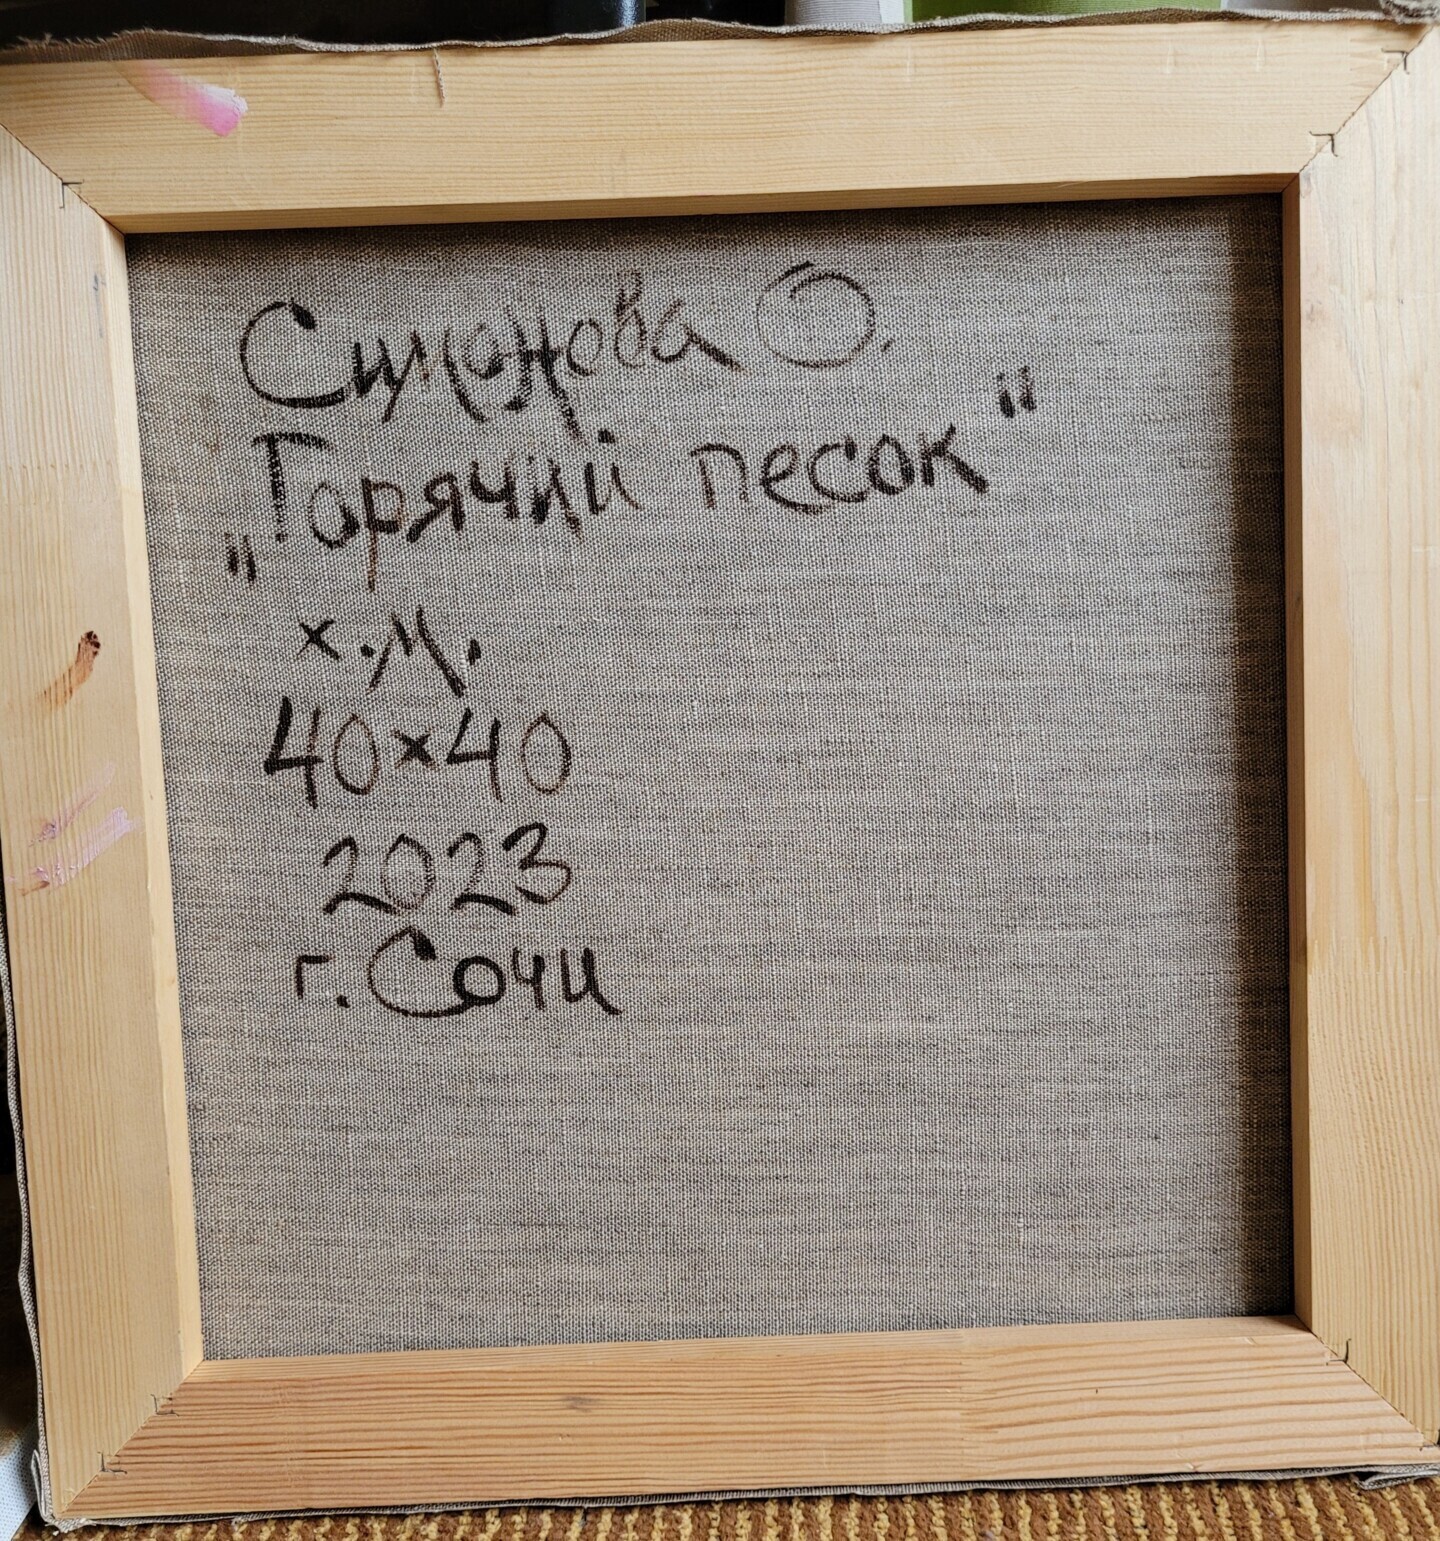 Симонова О.
„Горячий песок"
х.м.
40×40
2023
г. Сочи